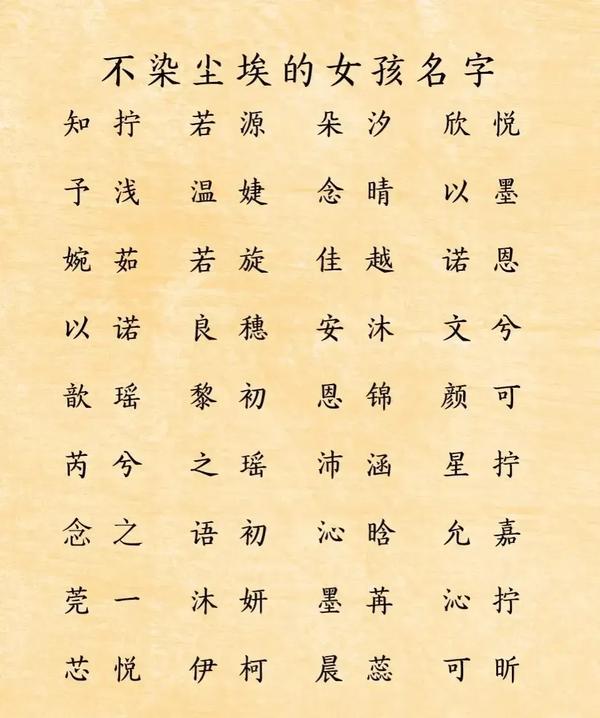 不染尘埃的女孩名字
知拧 若源 朵汐 欣悦
予浅 温婕 念晴 以墨
婉茹 若旋 佳越 诺恩
以诺 良穗 安沐 文兮
歆瑶 黎初 恩锦 颜可
芮兮 之瑶 沛涵 星拧
念之 语初 沁晗 允嘉
莞一 沐妍 墨苒 沁拧
芯悦 伊柯 晨蕊 可昕